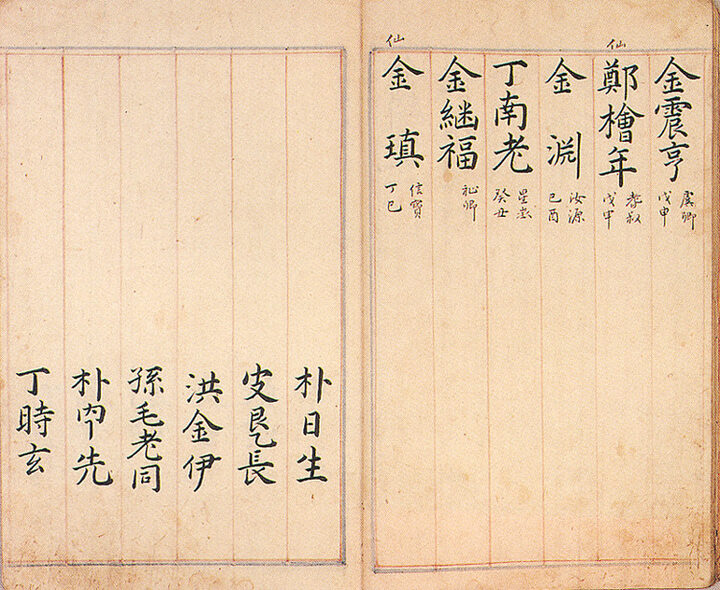 金震亨
虞卿
戊申
仙
鄭檜年
戊申
金渊
汝源
己酉
丁南老
癸丑
金継福
祉卿
仙
金瑱
信寶
丁巳
朴日生
皮艮乙長
洪金伊
孫毛老同
朴内先
丁時玄